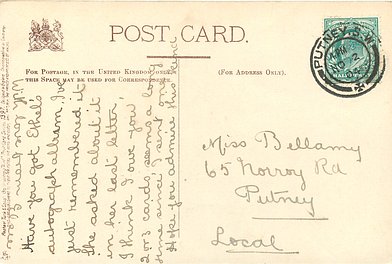 POST CARD.
FOR POSTAGE, IN THE UNITED KINGDOM ONLY,
THIS SPACE MAY BE USED FOR CORRESPONDENCE
(FOR ADDRESS ONLY).
PUTNEY. S.W.
Have you got Ethels
autograph album, I've
just remembered it
She asked about it
in her last letter.
I think I owe you
2 or 3 cards, seems a long
time since I sent one
Hope you admire this
With love from
Miss Bellamy
65 Norroy Rd
Putney
Local